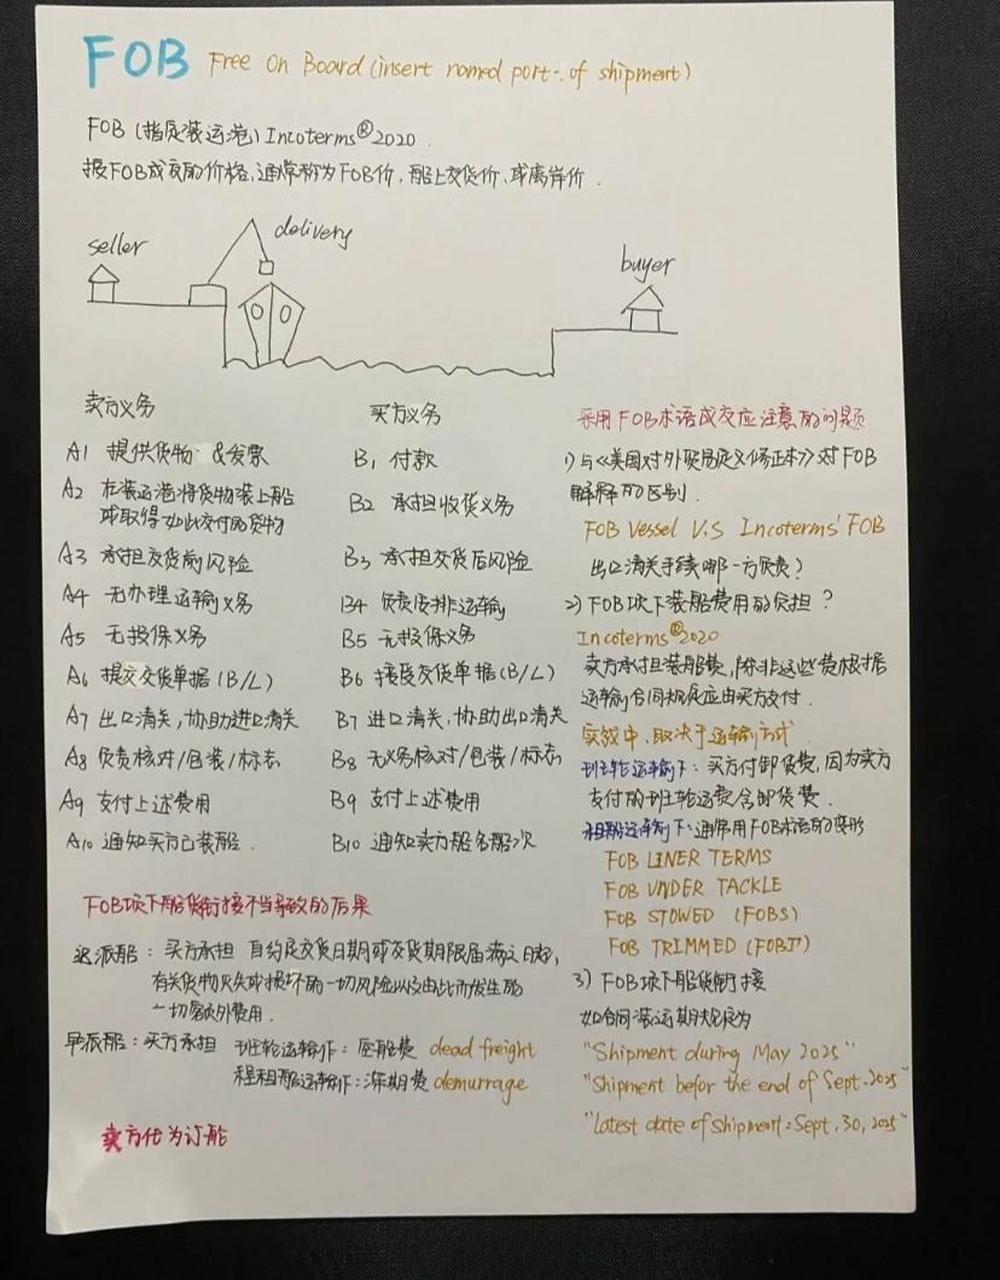 FOB Free on Board (insert named port of shipment)
FOB (指定装运港) Incoterms®2020
按FOB成交的价格,通常称为FOB价,船上交货价,或离岸价.
delivery
seller
buyer
卖方义务
A1 提供货物 &发票
A2 在装运港将货物装上船
或取得如此交付的货物
A3 承担交货前风险
A4 无办理运输义务
A5 无投保义务
A6 提交交货单据(B/L)
A7 出口清关,协助进口清关
A8 负责核对/包装/标志
A9 支付上述费用
A10 通知买方已装船.
买方义务
B1 付款
B2 承担收货义务
B3 承担交货后风险
B4 负责安排运输
B5 无投保义务
B6 接受交货单据(B/L)
B7 进口清关,协助出口清关
B8 无义务核对/包装/标志
B9 支付上述费用
B10 通知卖方船名船次
FOB项下船货衔接不当导致的后果
迟派船: 买方承担 自约定交货日期或交货期限届满之日起,
有关货物灭失或损坏的一切风险以及由此而发生的
一切额外费用.
早派船: 买方承担 班轮运输下: 空舱费 dead freight
程租船运输下: 滞期费 demurrage
卖方代为订船
采用FOB术语成交应注意的问题
1) 与《美国对外贸易定义修正本》对FOB
解释的区别.
FOB Vessel V.S Incoterms' FOB
出口清关手续哪一方负责?
2) FOB项下装船费用的负担?
Incoterms®2020
卖方承担装船费,除非这些费根据
运输合同规定应由买方支付.
实务中,取决于运输方式
班轮运输下: 买方付卸货费,因为卖方
支付的班轮运费含卸货费.
租船运输下: 通常用FOB术语的变形
FOB LINER TERMS
FOB UNDER TACKLE
FOB STOWED (FOBS)
FOB TRIMMED (FOBT)
3) FOB项下船货衔接
如合同装运期规定为
"Shipment during May 2025"
"Shipment befor the end of Sept. 2025"
"Latest date of shipment: Sept. 30, 2025"